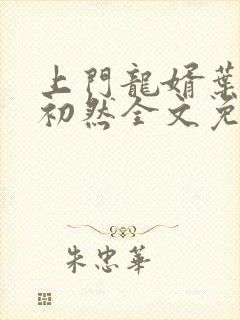 上門龍婿葉
初然全文免
朱忠華